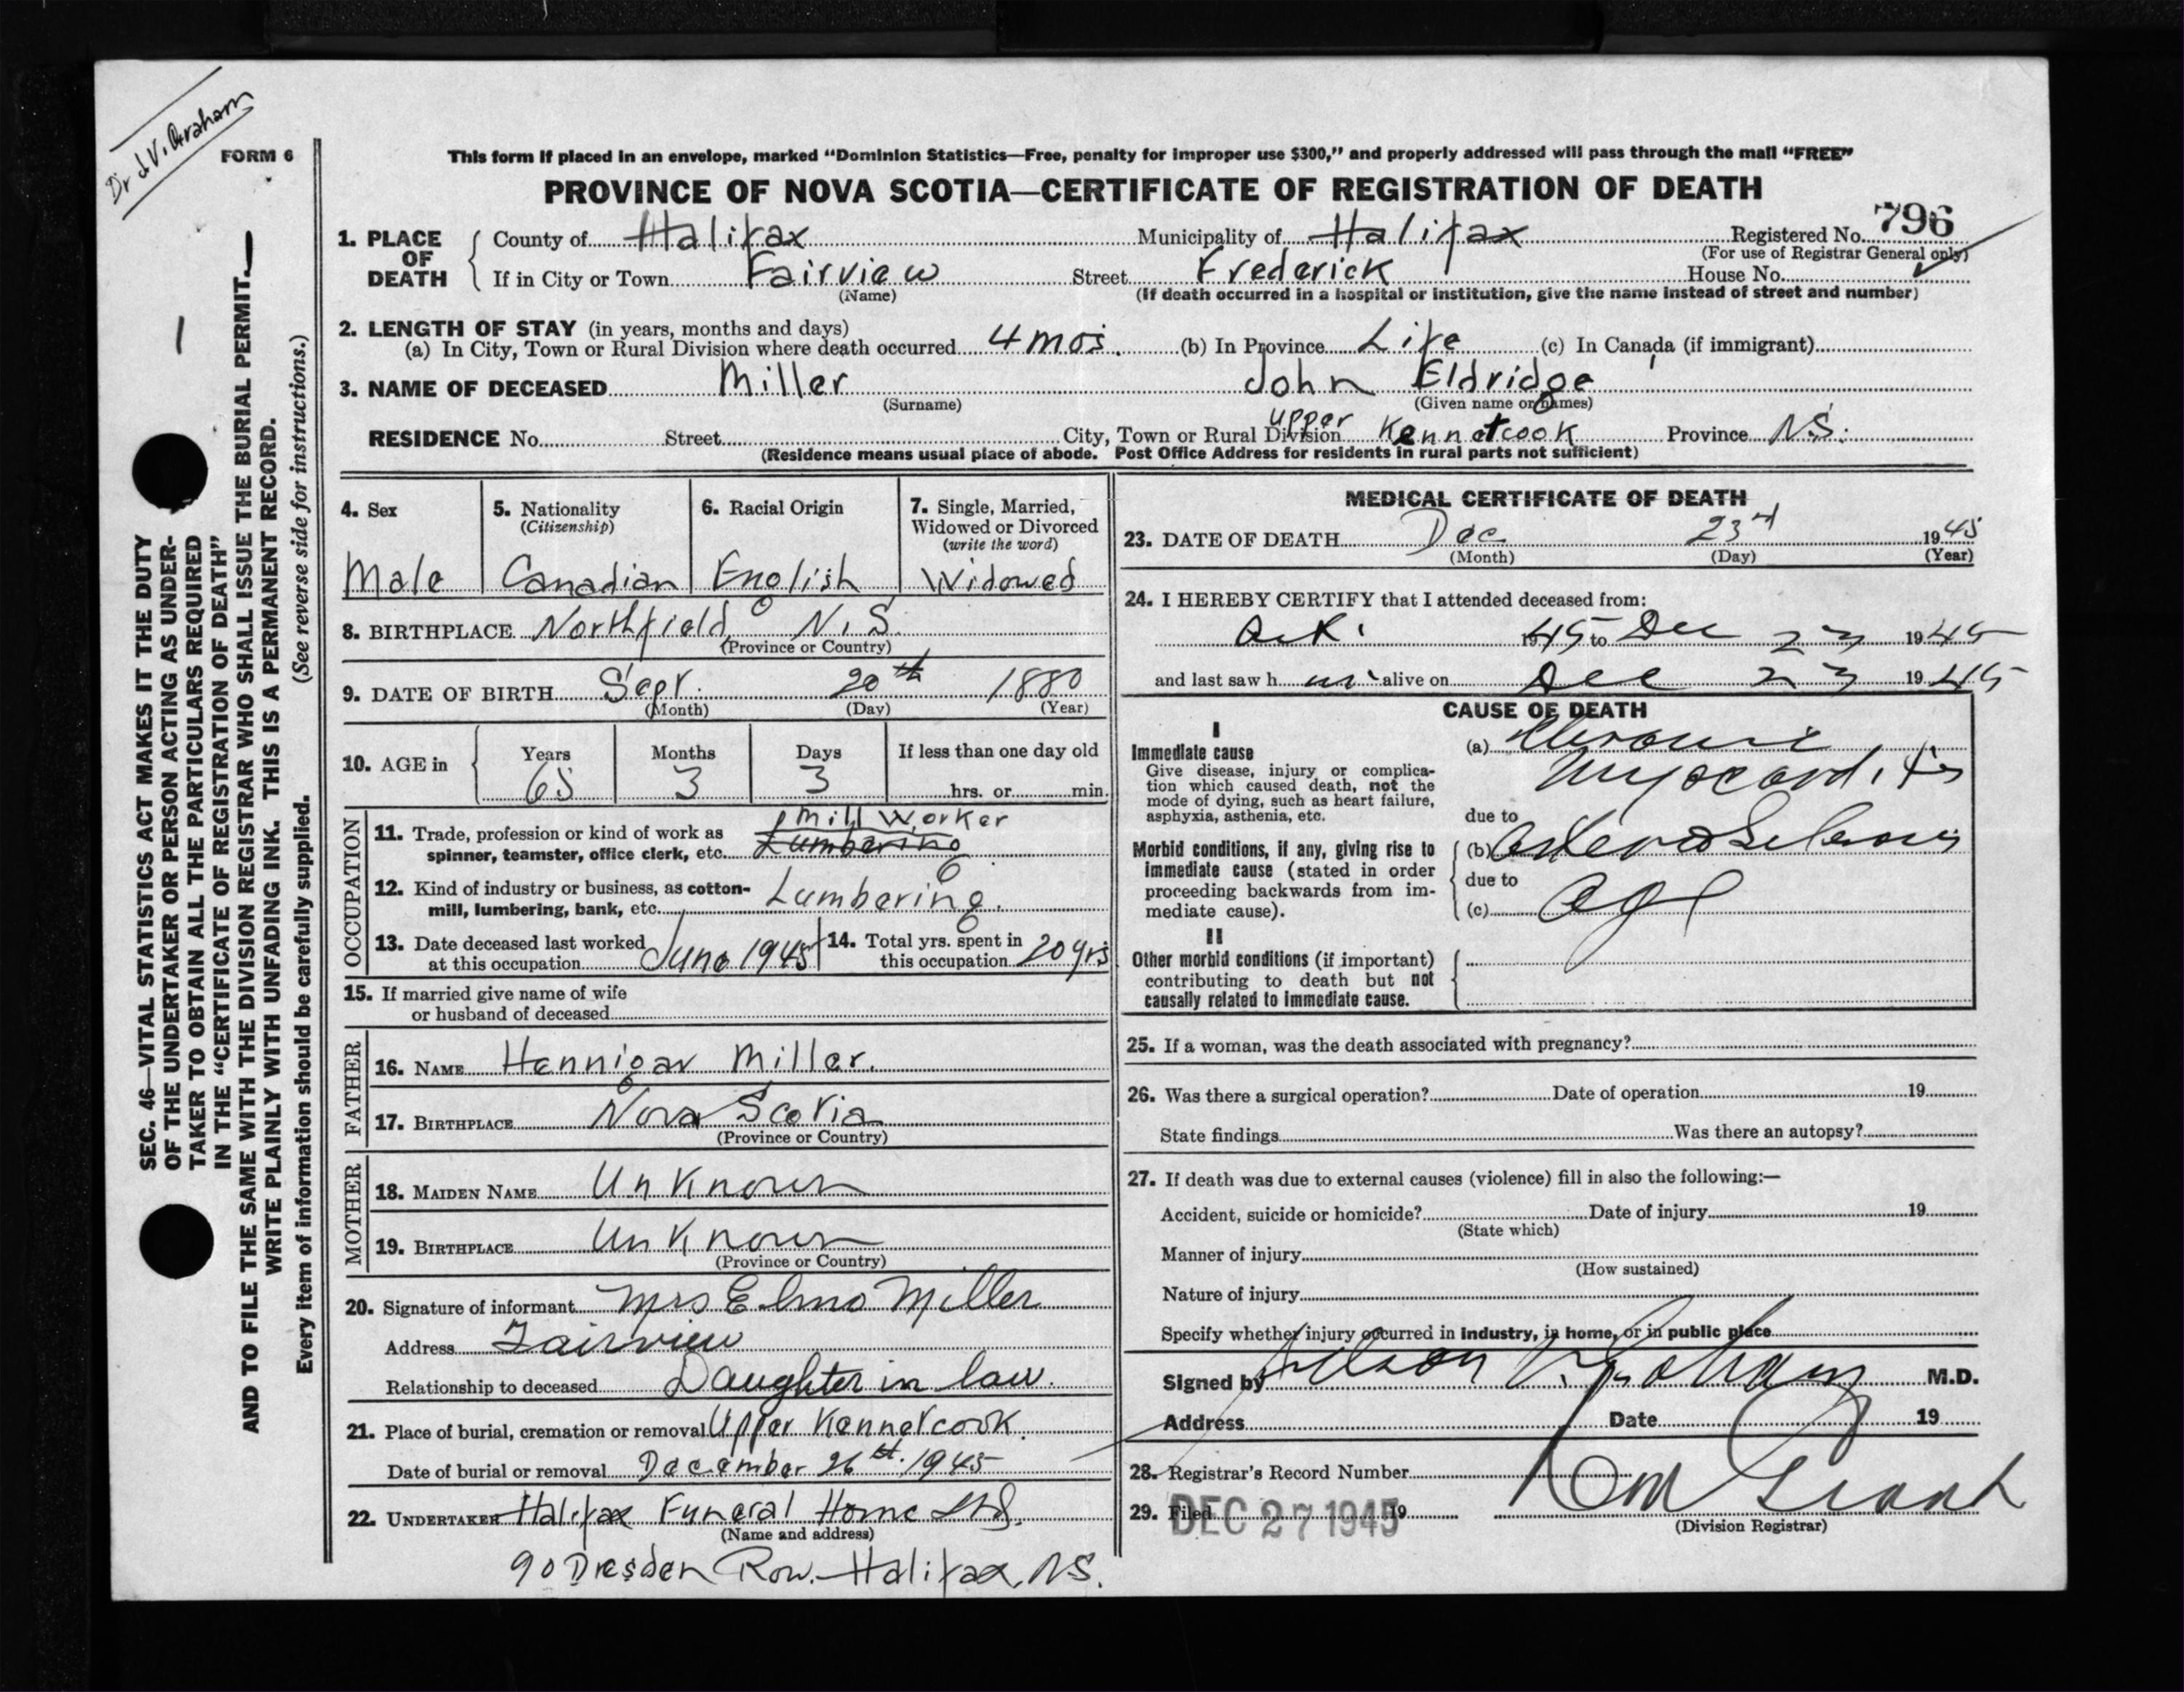 Dr J. V. Graham
FORM 6
SEC. 46—VITAL STATISTICS ACT MAKES IT THE DUTY
OF THE UNDERTAKER OR PERSON ACTING AS UNDER-
TAKER TO OBTAIN ALL THE PARTICULARS REQUIRED
IN THE "CERTIFICATE OF REGISTRATION OF DEATH"
AND TO FILE THE SAME WITH THE DIVISION REGISTRAR WHO SHALL ISSUE THE BURIAL PERMIT.
WRITE PLAINLY WITH UNFADING INK. THIS IS A PERMANENT RECORD.
Every item of information should be carefully supplied. (See reverse side for instructions.)
This form if placed in an envelope, marked "Dominion Statistics—Free, penalty for improper use $300," and properly addressed will pass through the mail "FREE"
PROVINCE OF NOVA SCOTIA—CERTIFICATE OF REGISTRATION OF DEATH
1. PLACE OF DEATH County of Halifax Municipality of Halifax Registered No. 796
(For use of Registrar General only)
If in City or Town Fairview Street Frederick House No.
(Name) (If death occurred in a hospital or institution, give the name instead of street and number)
2. LENGTH OF STAY (in years, months and days)
(a) In City, Town or Rural Division where death occurred 4 mos. (b) In Province Life (c) In Canada (if immigrant)
3. NAME OF DECEASED Miller John Eldridge
(Surname) (Given name or names)
RESIDENCE No. Street City, Town or Rural Division Upper Kennetcook Province N.S.
(Residence means usual place of abode. Post Office Address for residents in rural parts not sufficient)
4. Sex 5. Nationality 6. Racial Origin 7. Single, Married,
(Citizenship) Widowed or Divorced
(write the word)
Male Canadian English Widowed
8. BIRTHPLACE Northfield, N.S.
(Province or Country)
9. DATE OF BIRTH Sept. 20th 1880
(Month) (Day) (Year)
10. AGE in Years Months Days If less than one day old
65 3 3 hrs. or min.
OCCUPATION
11. Trade, profession or kind of work as Mill Worker
spinner, teamster, office clerk, etc. Lumbering
12. Kind of industry or business, as cotton- Lumbering.
mill, lumbering, bank, etc.
13. Date deceased last worked June 1945 14. Total yrs. spent in 20 yrs
at this occupation this occupation
15. If married give name of wife
or husband of deceased
FATHER
16. NAME Hennigar Miller.
17. BIRTHPLACE Nova Scotia
(Province or Country)
MOTHER
18. MAIDEN NAME Unknown
19. BIRTHPLACE Unknown
(Province or Country)
20. Signature of informant Mrs Elmo Miller
Address Fairview
Relationship to deceased Daughter in law.
21. Place of burial, cremation or removal Upper Kennetcook.
Date of burial or removal December 26st. 1945
22. UNDERTAKER Halifax Funeral Home Ltd.
(Name and address)
90 Dresden Row. Halifax, NS.
MEDICAL CERTIFICATE OF DEATH
23. DATE OF DEATH Dec 23rd 1945
(Month) (Day) (Year)
24. I HEREBY CERTIFY that I attended deceased from:
1945 to Dec 23 1945
and last saw h im alive on Dec 23 1945
CAUSE OF DEATH
I
Immediate cause (a) Chronic
Give disease, injury or complica-
tion which caused death, not the Myocarditis
mode of dying, such as heart failure,
asphyxia, asthenia, etc. due to
Morbid conditions, if any, giving rise to (b) Arteriosclerosis
immediate cause (stated in order due to
proceeding backwards from im-
mediate cause). (c) age
II
Other morbid conditions (if important)
contributing to death but not
causally related to immediate cause.
25. If a woman, was the death associated with pregnancy?
26. Was there a surgical operation? Date of operation 19
State findings Was there an autopsy?
27. If death was due to external causes (violence) fill in also the following:—
Accident, suicide or homicide? Date of injury 19
(State which)
Manner of injury
(How sustained)
Nature of injury
Specify whether injury occurred in industry, in home, or in public place
Signed by Graham M.D.
Address Date 19
28. Registrar's Record Number
29. Filed DEC 27 1945 19 Grant
(Division Registrar)